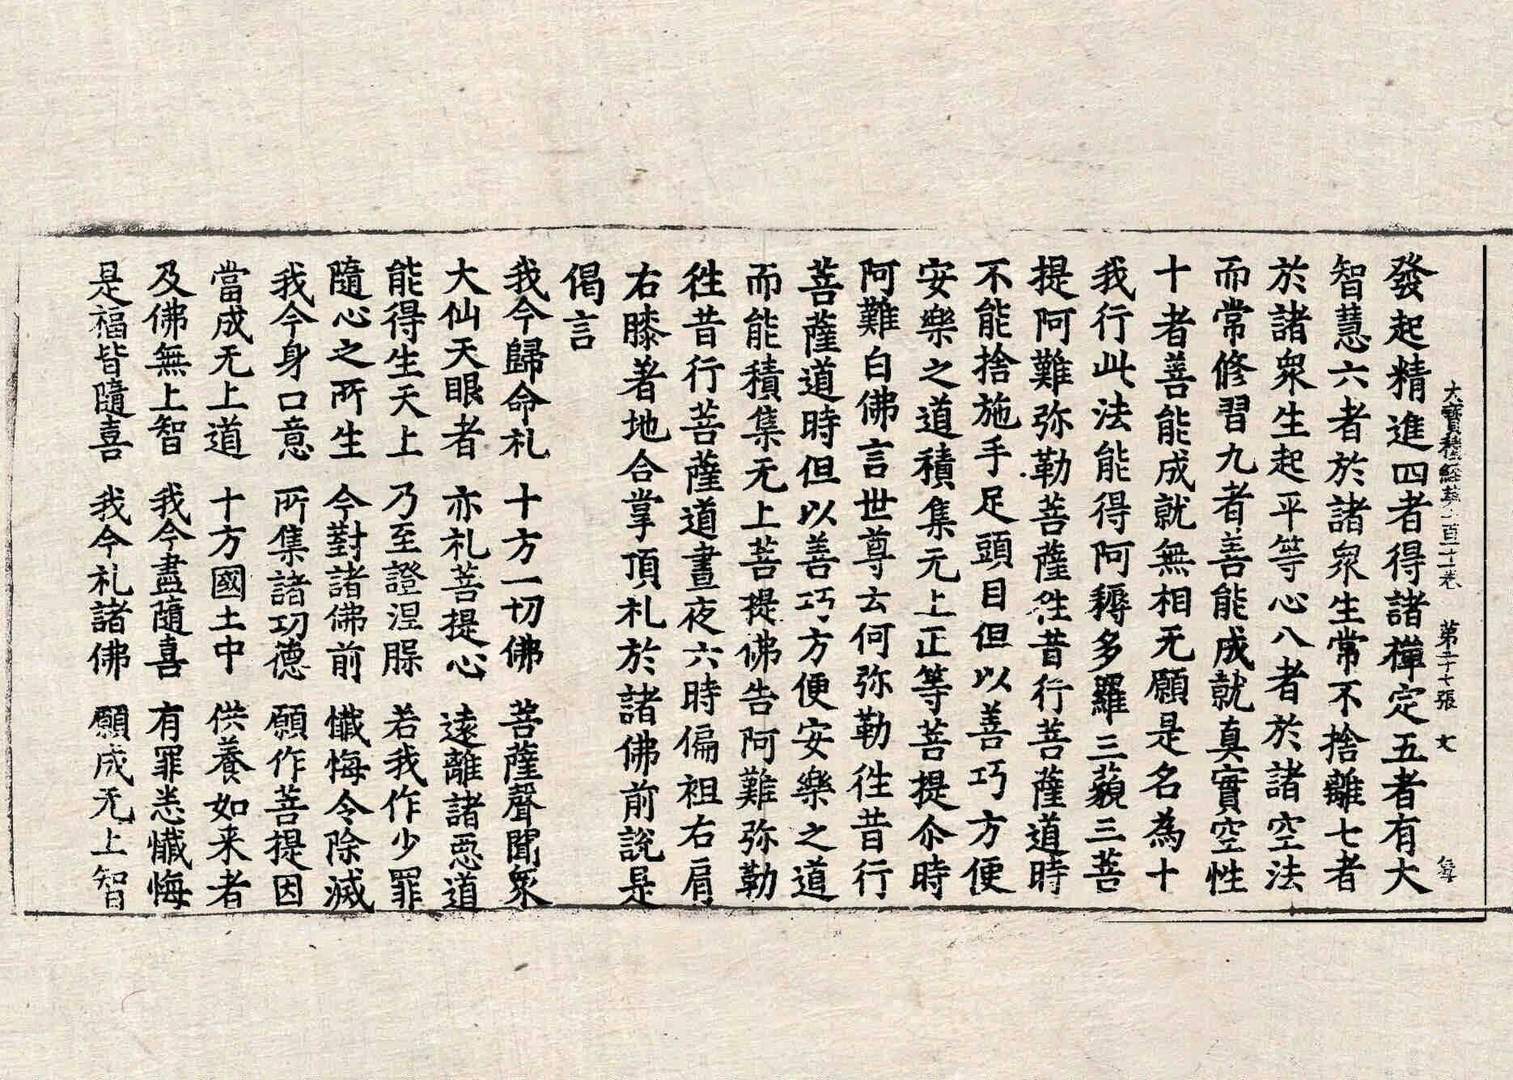 大寶積經第一百十一卷 第二十七張 文
發起精進四者得諸禪定五者有大
智慧六者於諸衆生常不捨離七者
於諸衆生起平等心八者於諸空法
而常修習九者善能成就真實空性
十者善能成就無相无願是名為十
我行此法能得阿耨多羅三藐三菩
提阿難弥勒菩薩徃昔行菩薩道時
不能捨施手足頭目但以善巧方便
安樂之道積集无上正等菩提尒時
阿難白佛言世尊云何弥勒徃昔行
菩薩道時但以善巧方便安樂之道
而能積集无上菩提佛告阿難弥勒
徃昔行菩薩道晝夜六時偏袒右肩
右膝著地合掌頂礼於諸佛前說是
偈言
我今歸命礼 十方一切佛 菩薩聲聞衆
大仙天眼者 亦礼菩提心 遠離諸惡道
能得生天上 乃至證涅槃 若我作少罪
隨心之所生 今對諸佛前 懺悔令除滅
我今身口意 所集諸功德 願作菩提因
當成无上道 十方國土中 供養如来者
及佛無上智 我今盡隨喜 有罪悉懺悔
是福皆隨喜 我今礼諸佛 願成无上智